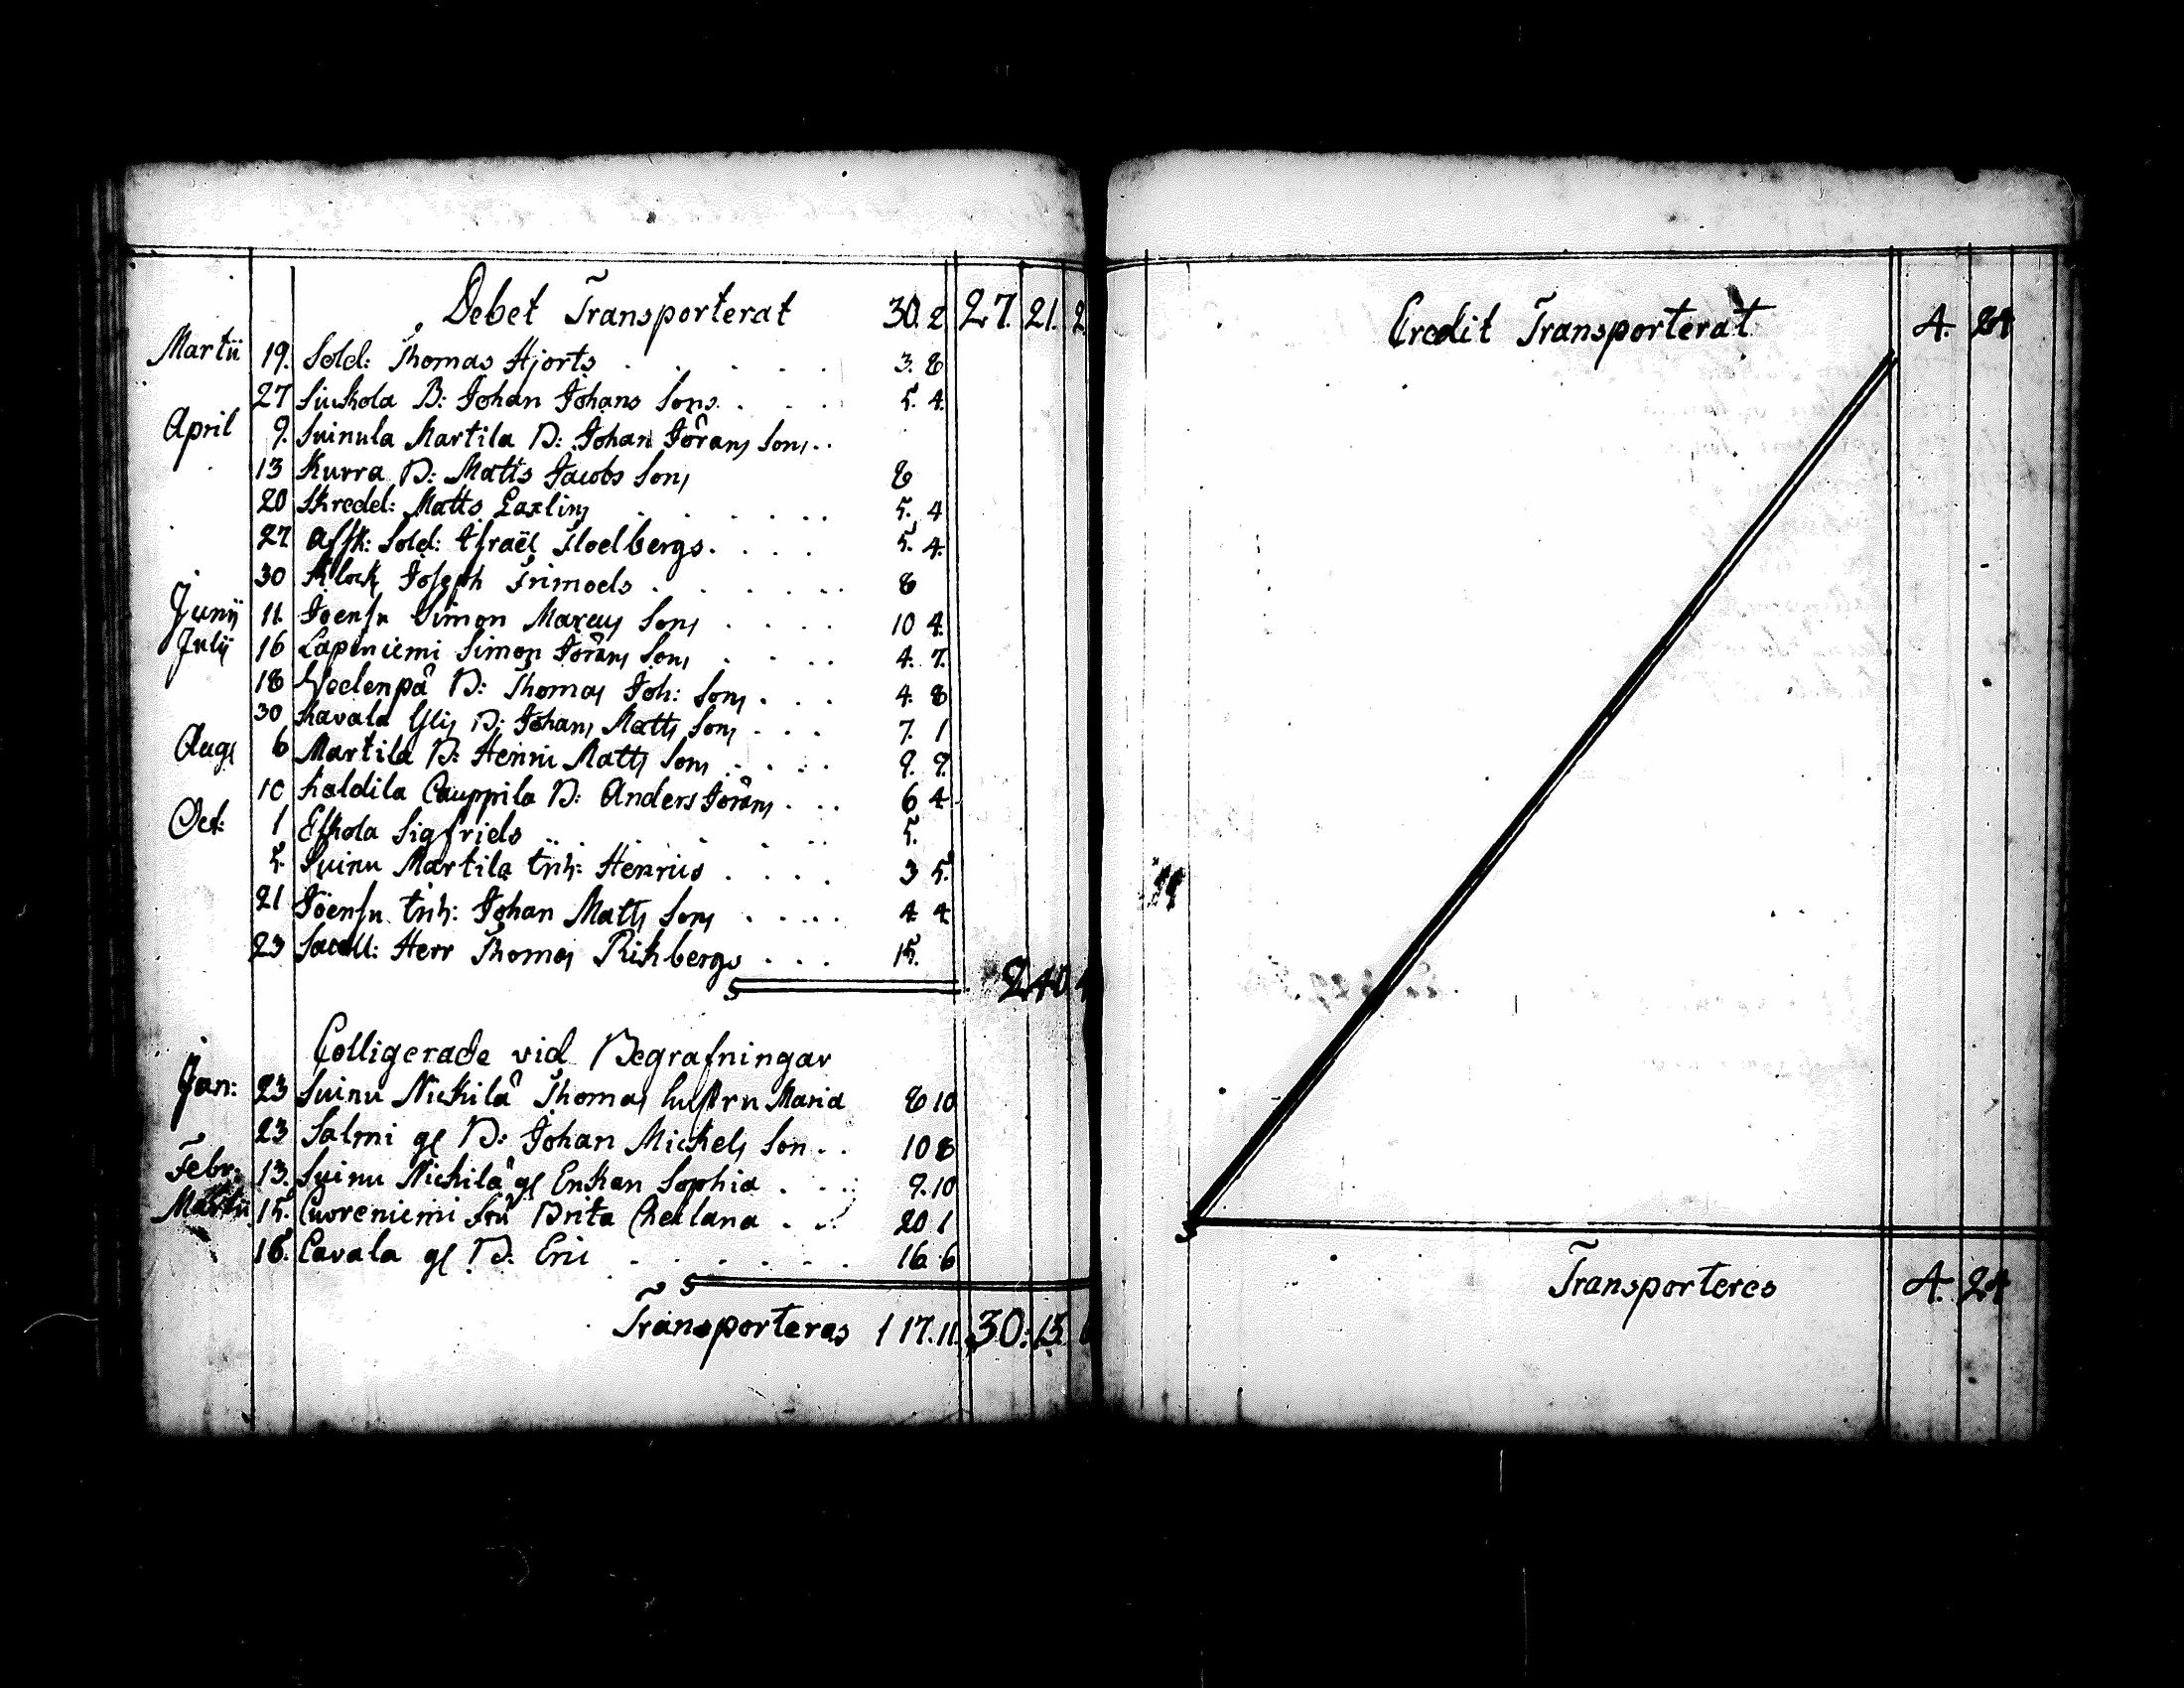 Debet Transporterat 30. 2 27. 21. 2
Martii 19. Sold: Thomas Hjorts . . . . . . 3. 8
27 Suckola B: Johan Johans Sons. . . . 5. 4.
April 9. Suinula Martila B: Johan Jörans Sons. .
13 Kurra B: Matts Jacobs Sons 8
20 Skredd: Matts Laxlins . . . . . . 5. 4
27 Afsk: Sold: Israël Floelbergs. . . . 5. 4.
30 Klock. Joseph Trimoels . . . . . . 8
Junij 11. Joensu Simon Marcus Sons . . . . 10 4.
Julij 16 Lapiniemi Simon Jörans Sons . . . . 4. 7.
18 Wedenpä B: Thomas Joh: Sons . . . 4. 8
30 Kavala Ylis B: Johans Matts Sons . . . 7. 1
Aug 6 Martila B: Henric Matts Sons . . . . 9. 9.
10 Kaldila Cauppila B: Anders Jörans . . . 6 4
Oct: 1 Eskola Sigfrids . . . . . . 5.
5. Suinu Martila Enk: Henrics . . . . 3 5.
21 Joensu Enk: Johan Matts Sons . . . . . 4 4
23 Sacell: Herr Thomas Rikbergs . . . 15.
240 4
Colligerade vid Begrafningar
Jan: 23 Suinu Nickilä Thomas hustru Maria 8 10
23 Salmi gl B: Johan Mickels Son . . 10 8
Febr: 13. Suinu Nickilä gl Enkan Sophia . . . 9. 10
Martii 15. Cuoreniemi Frü Brita Chellana . . 20 1
16. Cavala gl B: Eric . . . . . . 16. 6
Transporteras 117. 11. 30: 15.
Credit Transporterat 4. 24
Transporteres 4. 24